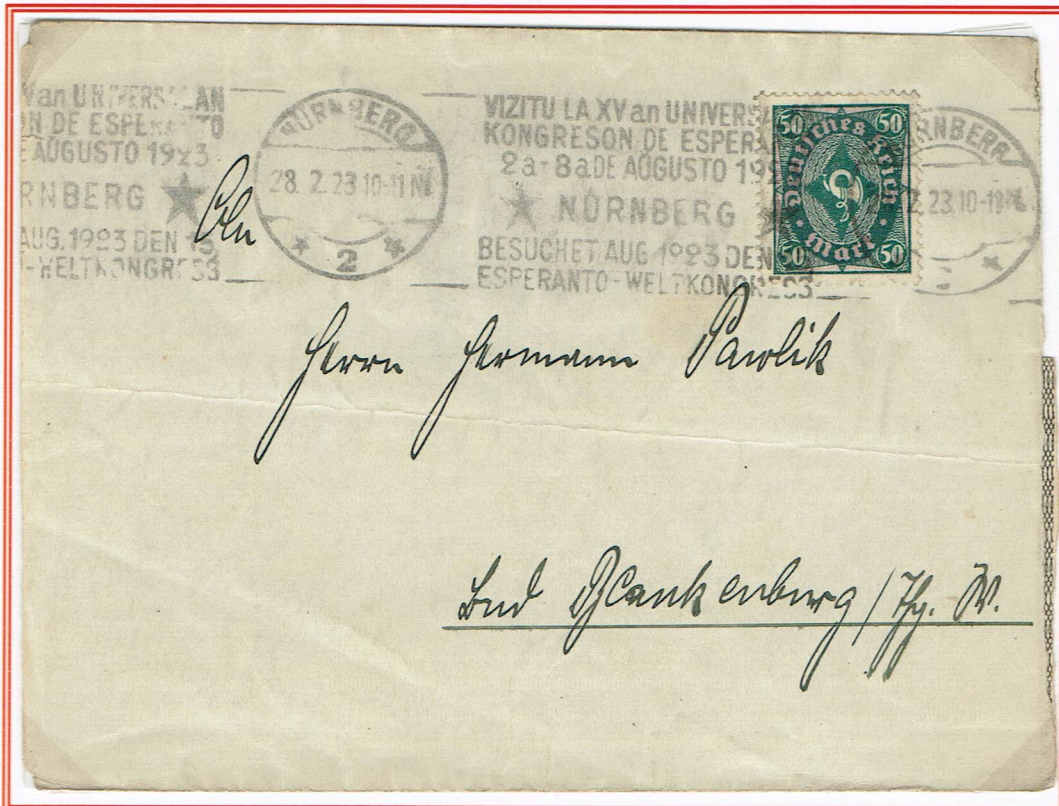 Van UNIVERSALAN
ON DE ESPERANTO
E AUGUSTO 1923
RNBERG
AUG. 1923 DEN 15
T-WELTKONGRESS
NÜRNBERG
28. 2. 23 10-11 N.
2
VIZITU LA XVan UNIVERSA
KONGRESON DE ESPERA
2a-8a DE AUGUSTO 19
NÜRNBERG
BESUCHET AUG 1923 DEN
ESPERANTO-WELTKONGRESS
50 50
Deutsches Reich
Mark
50 50
RNBERG
2. 23 10-11 N.
An
Herrn Hermann Pawlik
Bad Blankenburg/Th. W.